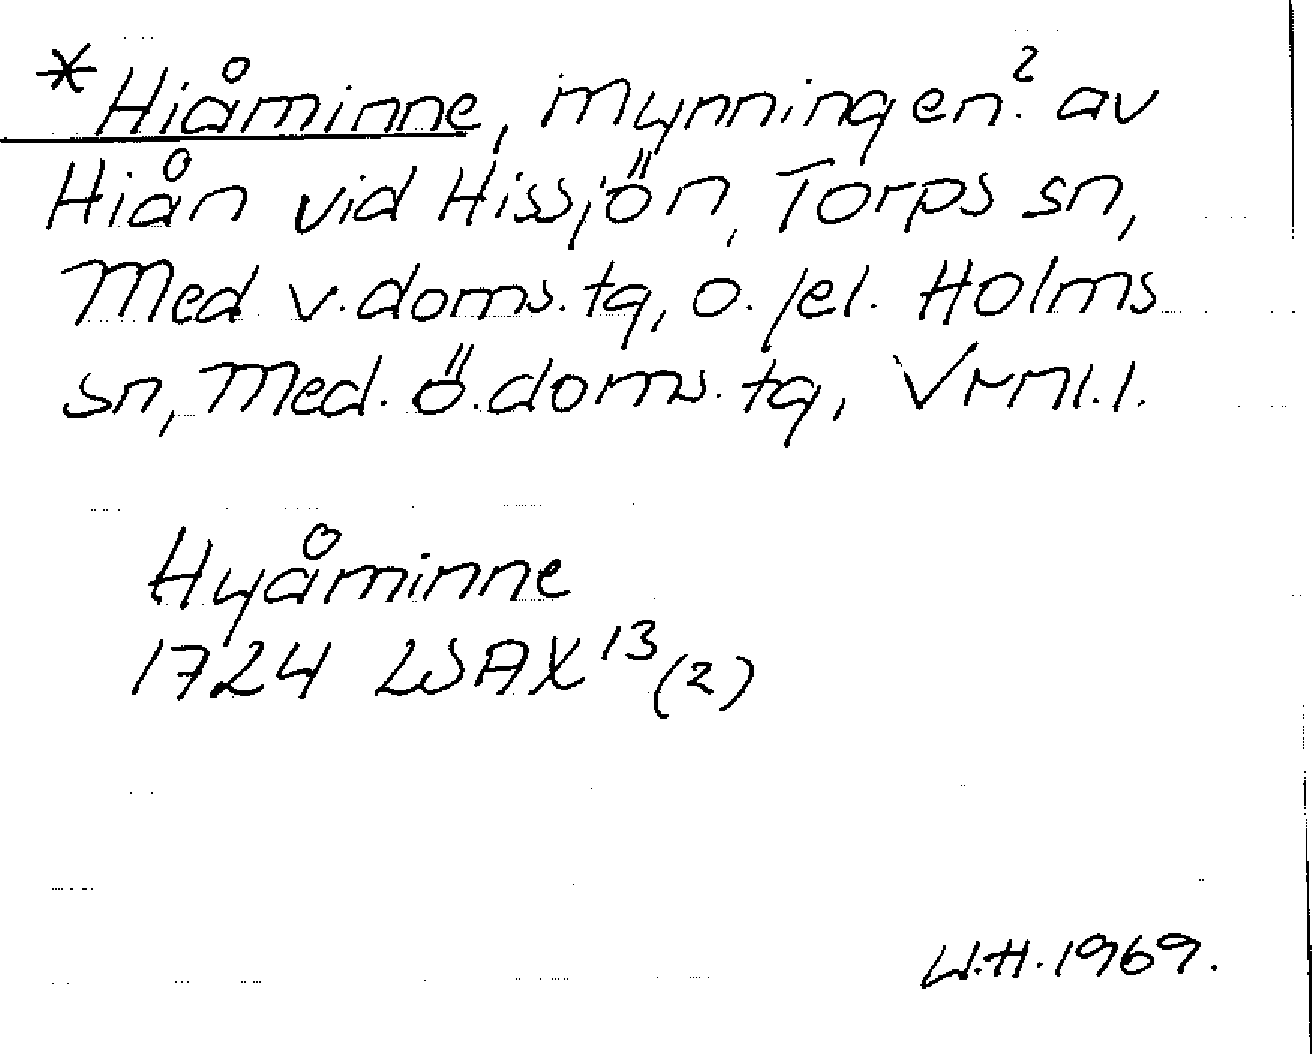 *Hiåminne, mynningen? av
Hiån vid Hissjön, Torps sn,
Med v.doms.tg, o./el. Holms
sn, Med. ö.doms.tg, Vrnl.l.
Hyåminne
1724 LSA X 13 (2)
W.H. 1969.